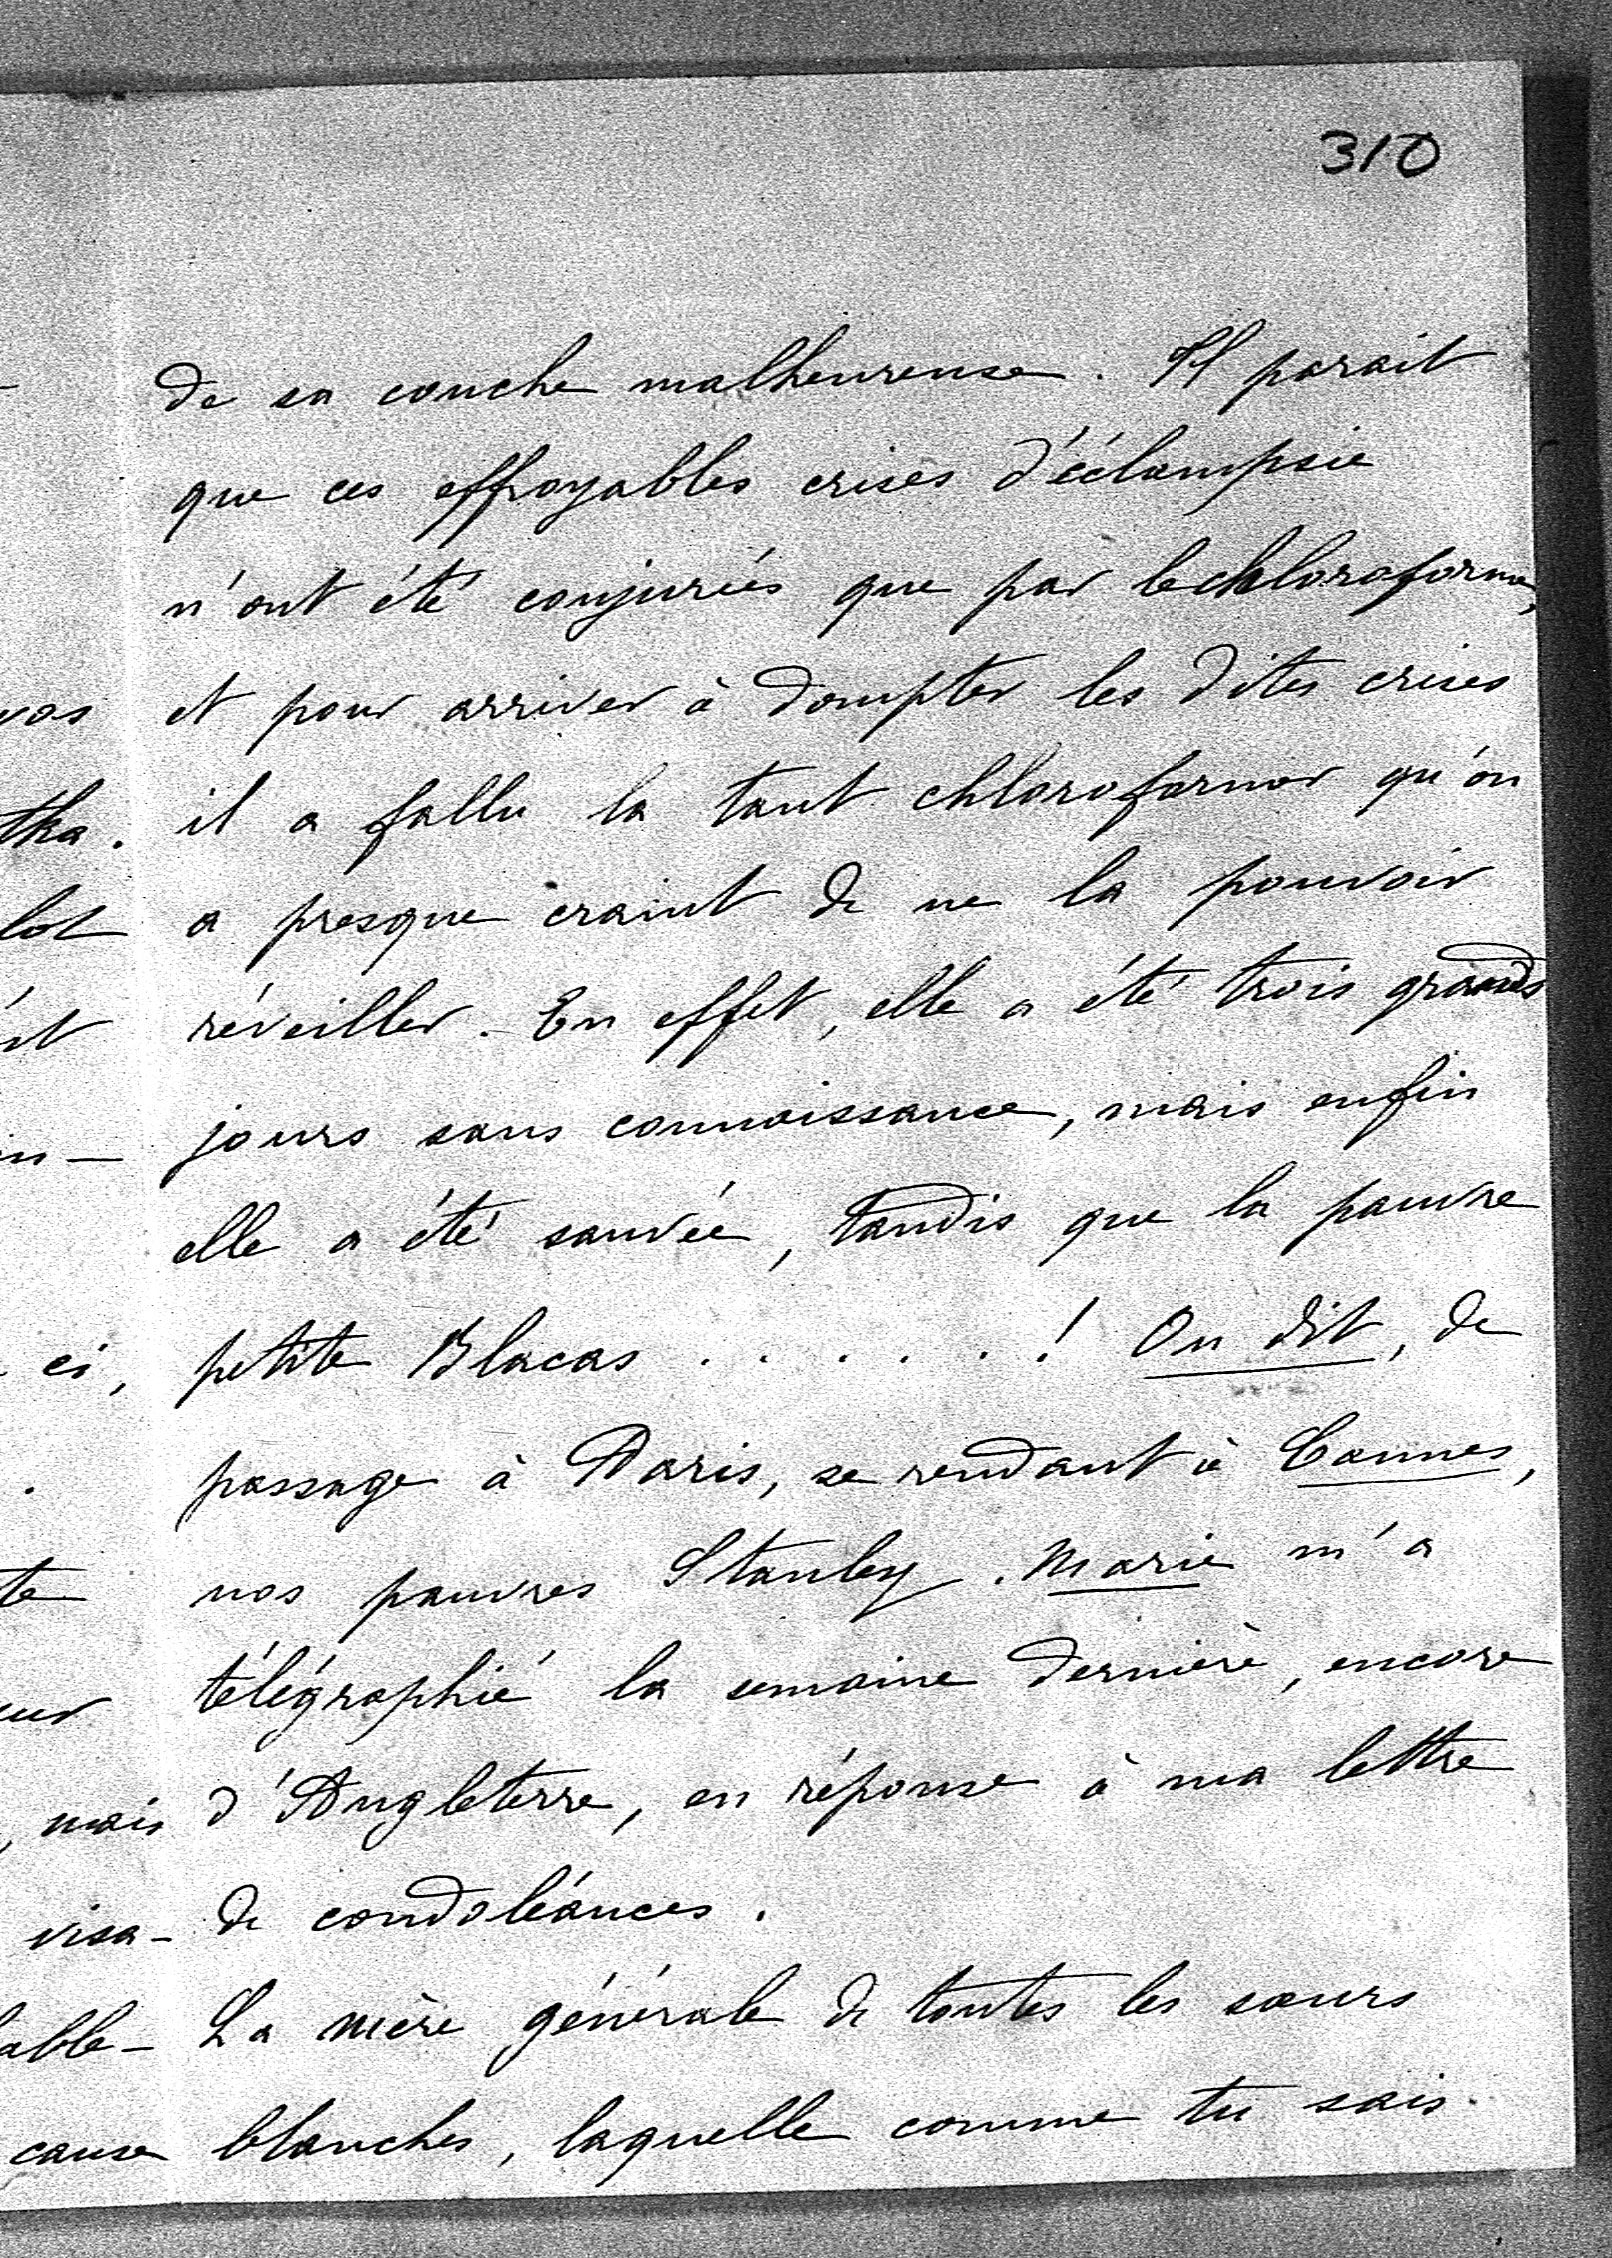 310
de sa couche malheureuse. Il parait
que ces effroyables crises d'éclampsie
n'ont été conjurées que par le chloroforme,
et pour arriver à dompter les dites crises
il a fallu la tant chloroformer qu'on
a presque craint de ne la pouvoir
réveiller. En effet, elle a été trois grands
jours sans connaissance, mais enfin
elle a été sauvée, tandis que la pauvre
petite Blacas . . . . . . ! On dit, de
passage à Paris, se rendant à Cannes,
nos pauvres Stanley. Marie m'a
télégraphié la semaine dernière, encore
d'Angleterre, en réponse à ma lettre
de condoléances.
La mère générale de toutes les sœurs
blanches, laquelle comme tu sais
vos
tha.
lot
ci,
te
mais
visa-
able-
cause